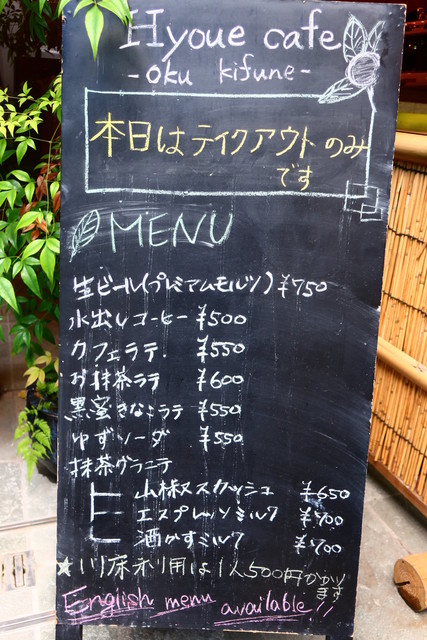 Hyoue cafe
-oku kifune-
本日はテイクアウトのみ
です
MENU
生ビール(プレミアムモルツ) ¥750
水出しコーヒー ¥500
カフェラテ. ¥550
お抹茶ラテ ¥600
黒蜜きなこラテ ¥550
ゆずソーダ ¥550
抹茶グラニテ
山椒スカッシュ ¥650
エスプレッソミルク ¥700
酒かすミルク ¥700
★川床利用は1人500円かかり
ます!!
English menu available